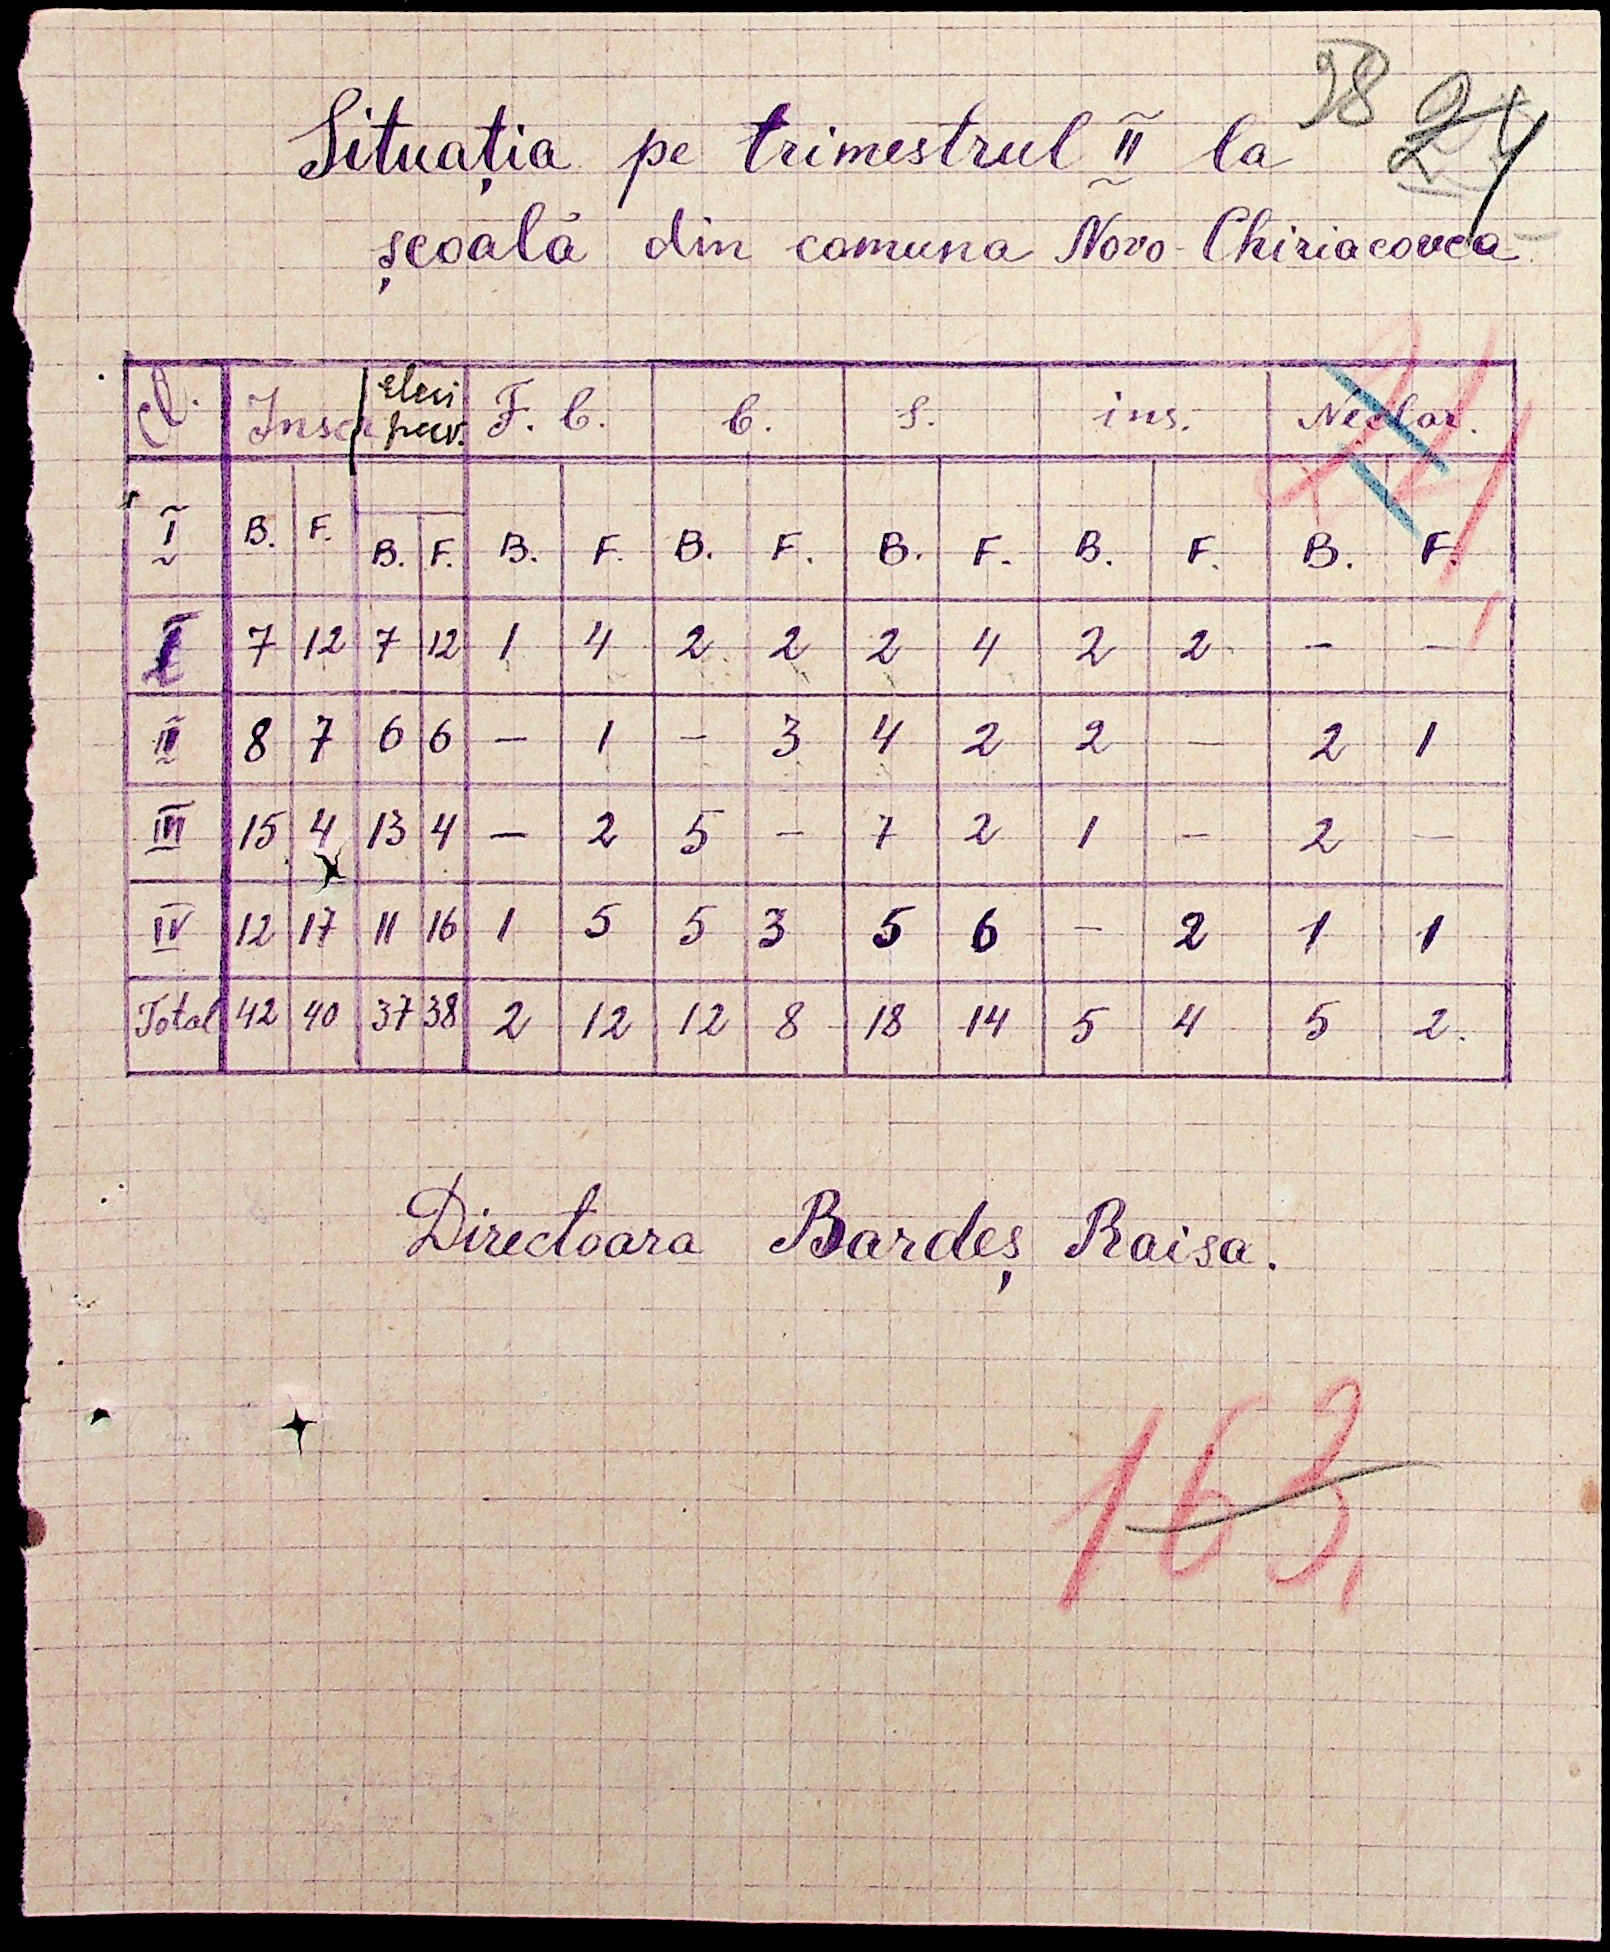 98 24
Situația pe trimestrul II la
școală din comuna Novo-Chiriacovca
Cl. Inscr elevi frecv. F. b. b. s. ins. Neclar.
I B. F. B. F. B. F. B. F. B. F. B. F. B. F.
I 7 12 7 12 1 4 2 2 2 4 2 2 - -
II 8 7 6 6 - 1 - 3 4 2 2 - 2 1
III 15 4 13 4 - 2 5 - 7 2 1 - 2 -
IV 12 17 11 16 1 5 5 3 5 6 - 2 1 1
Total 42 40 37 38 2 12 12 8 18 14 5 4 5 2.
Directoara Bardeș Raisa.
163.